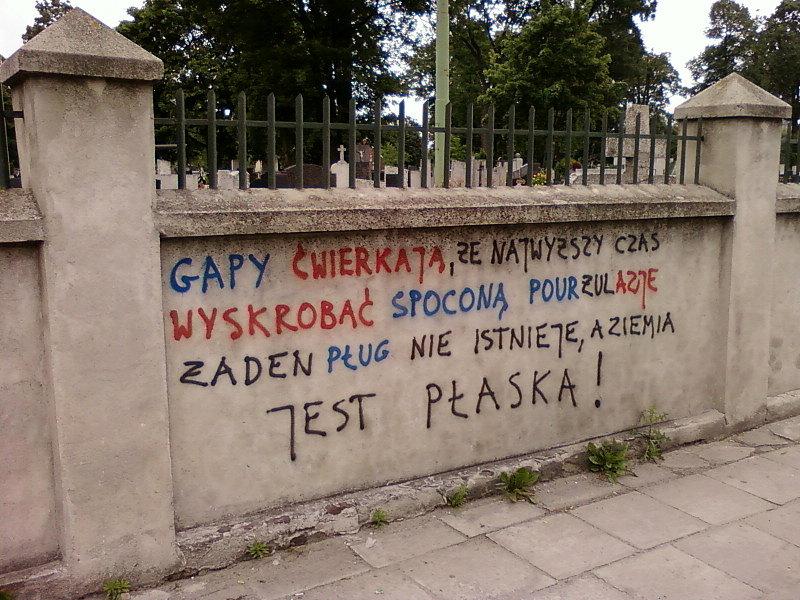 GAPY ĆWIERKAJĄ, ŻE NAJWYŻSZY CZAS
WYSKROBAĆ SPOCONĄ POURZULAZJE
ŻADEN PŁUG NIE ISTNIEJE, A ZIEMIA
JEST PŁASKA!